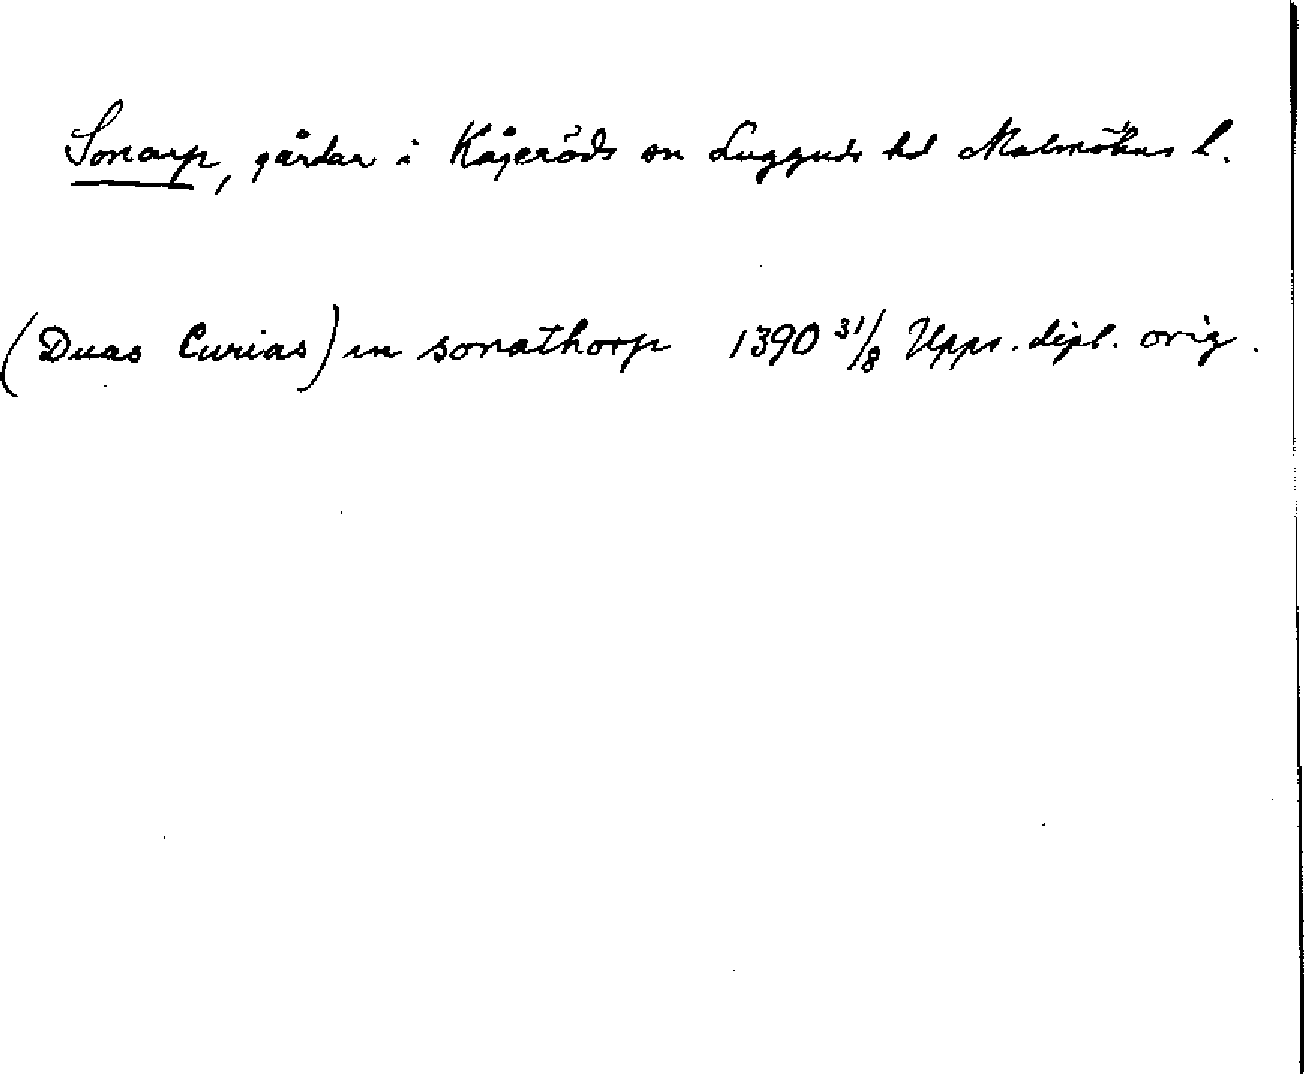 Sonarp, gårdar i Kågeröds sn Luggude hd Malmöhus l.
(Duas Curias) in sonathorp 1390 31/8 Upps. dipl. orig.